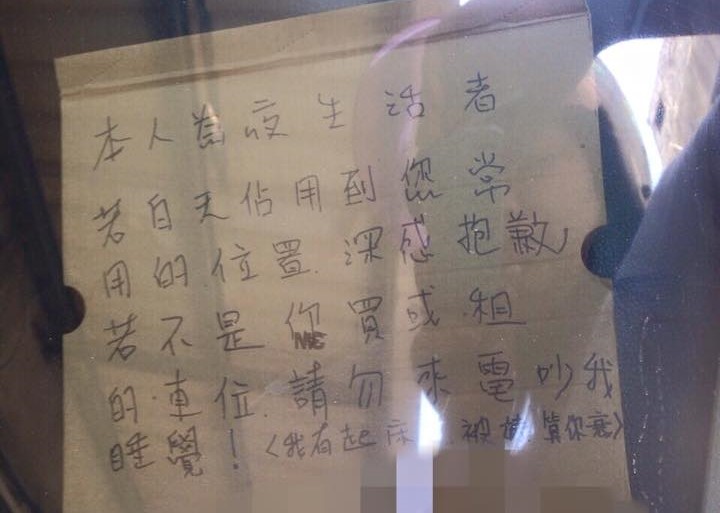 本人為夜生活者
若白天佔用到您常
用的位置.深感抱歉,
若不是你買或租
的車位.請勿來電吵我
睡覺!(我有起床 被 算你衰)